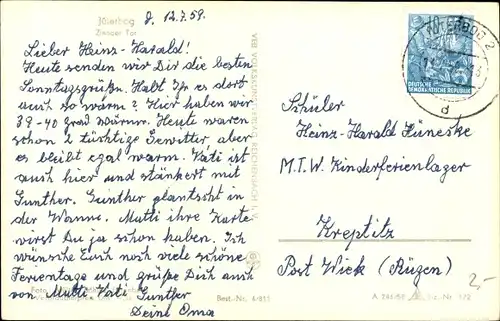 Jüterbog
Zinnaer Tor
J. 12.7.59.
Lieber Heinz-Harald!
Heute senden wir Dir die besten
Sonntagsgrüße. Habt Ihr es dort
auch so warm? Hier haben wir
38-40 grad wärme. Heute waren
schon 2 tüchtige Gewitter, aber
es bleibt egal warm. Vati ist
auch hier und stänkert mit
Gunther. Gunther planscht in
der Wanne. Mutti ihre Karte
wirst Du ja schon haben. Ich
wünsche Euch noch viele schöne
Ferientage und grüße Dich auch
von Mutti Vati Gunther
Deine Oma
Foto
Best.-Nr. 4/935
VEB VOLKSKUNSTVERLAG REICHENBACH I. V.
JÜTERBOG 2
d
DEUTSCHE
DEMOKRATISCHE REPUBLIK
Schüler
Heinz-Harald Hüneske
M.T.W. Kinderferienlager
Kreptitz
Post Wiek (Rügen)
2,-
A 246/59